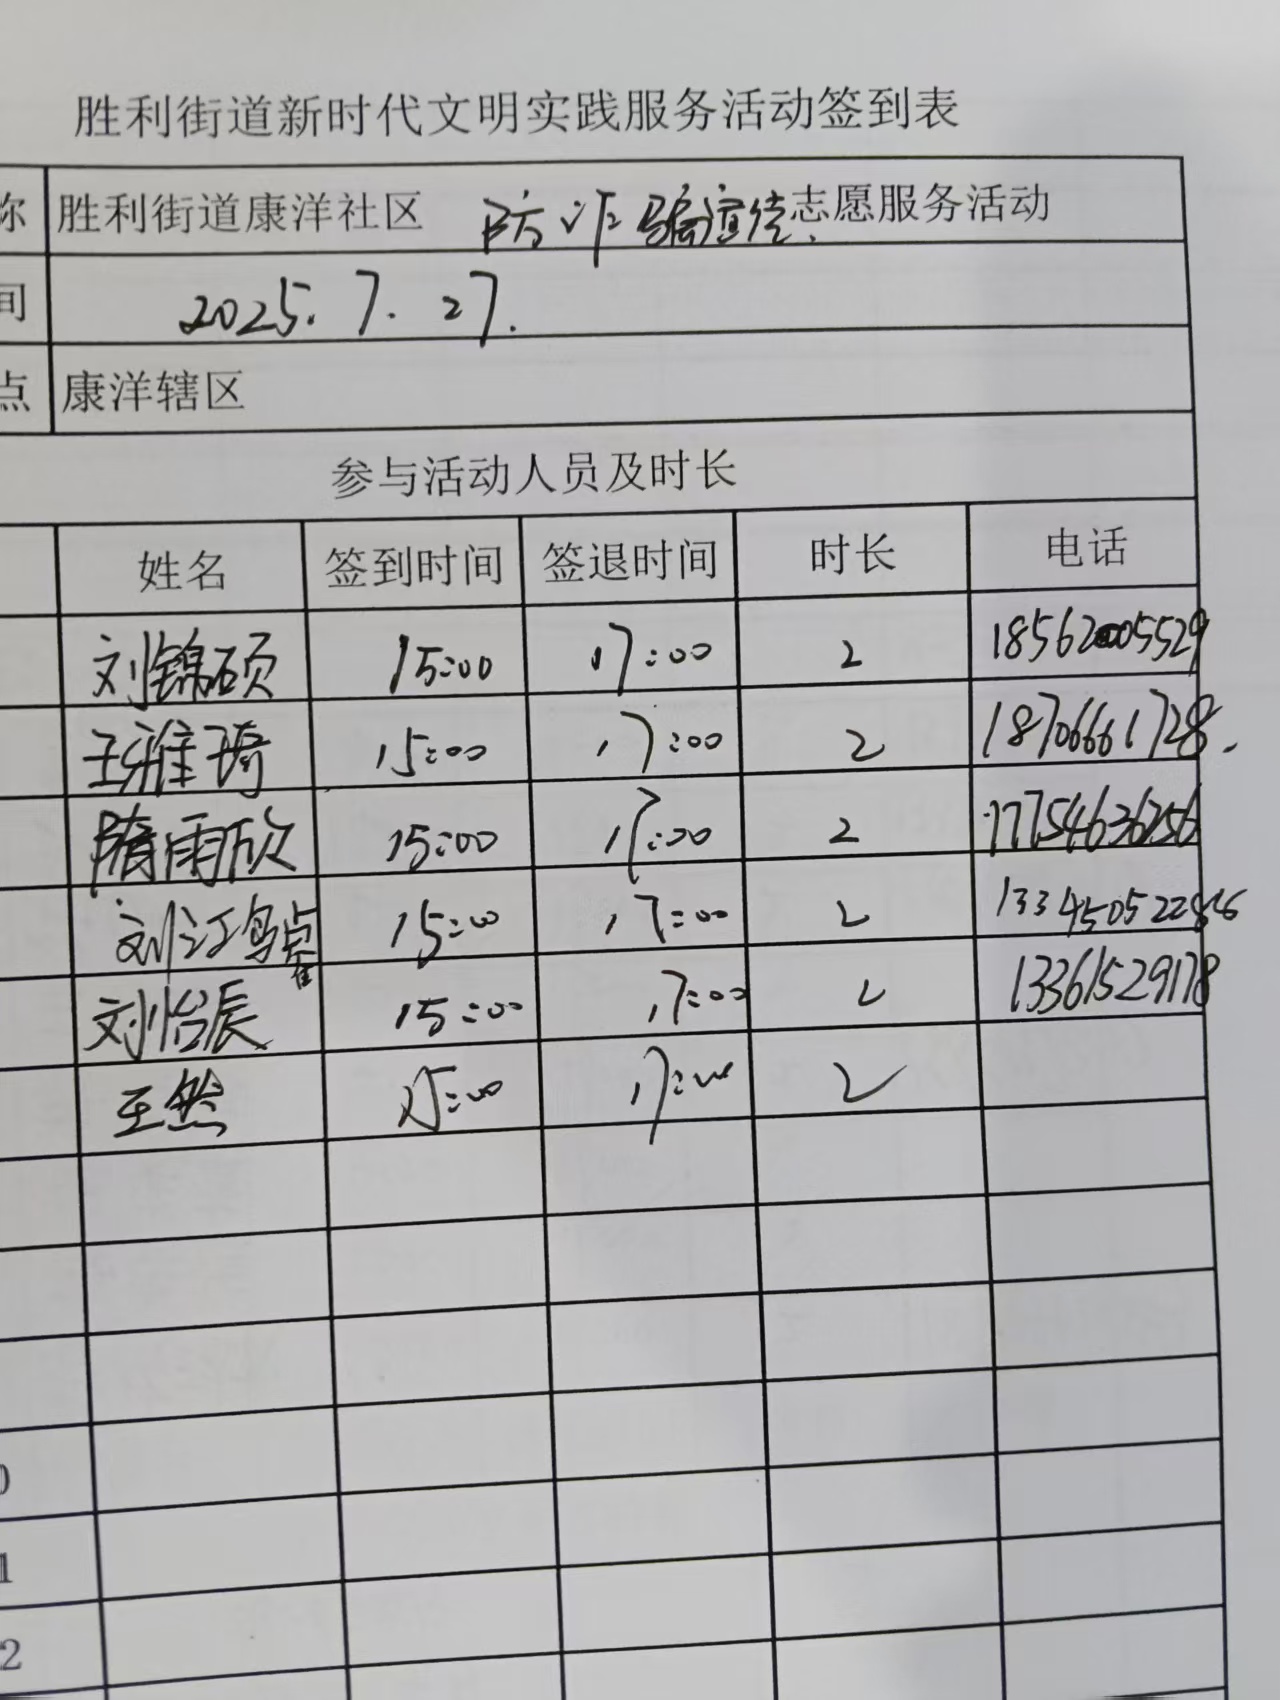 胜利街道新时代文明实践服务活动签到表
称 胜利街道康洋社区 防诈骗宣传 志愿服务活动
间 2025.7.27.
点 康洋辖区
参与活动人员及时长
姓名 签到时间 签退时间 时长 电话
刘锦硕 15:00 17:00 2
王雅琦 15:00 17:00 2 18706661728.
隋雨欣 15:00 17:00 2 17754636256
刘江 15:00 17:00 2
刘怡辰 15:00 17:00 2 13361529178
王然 15:00 17:00 2
0
1
2